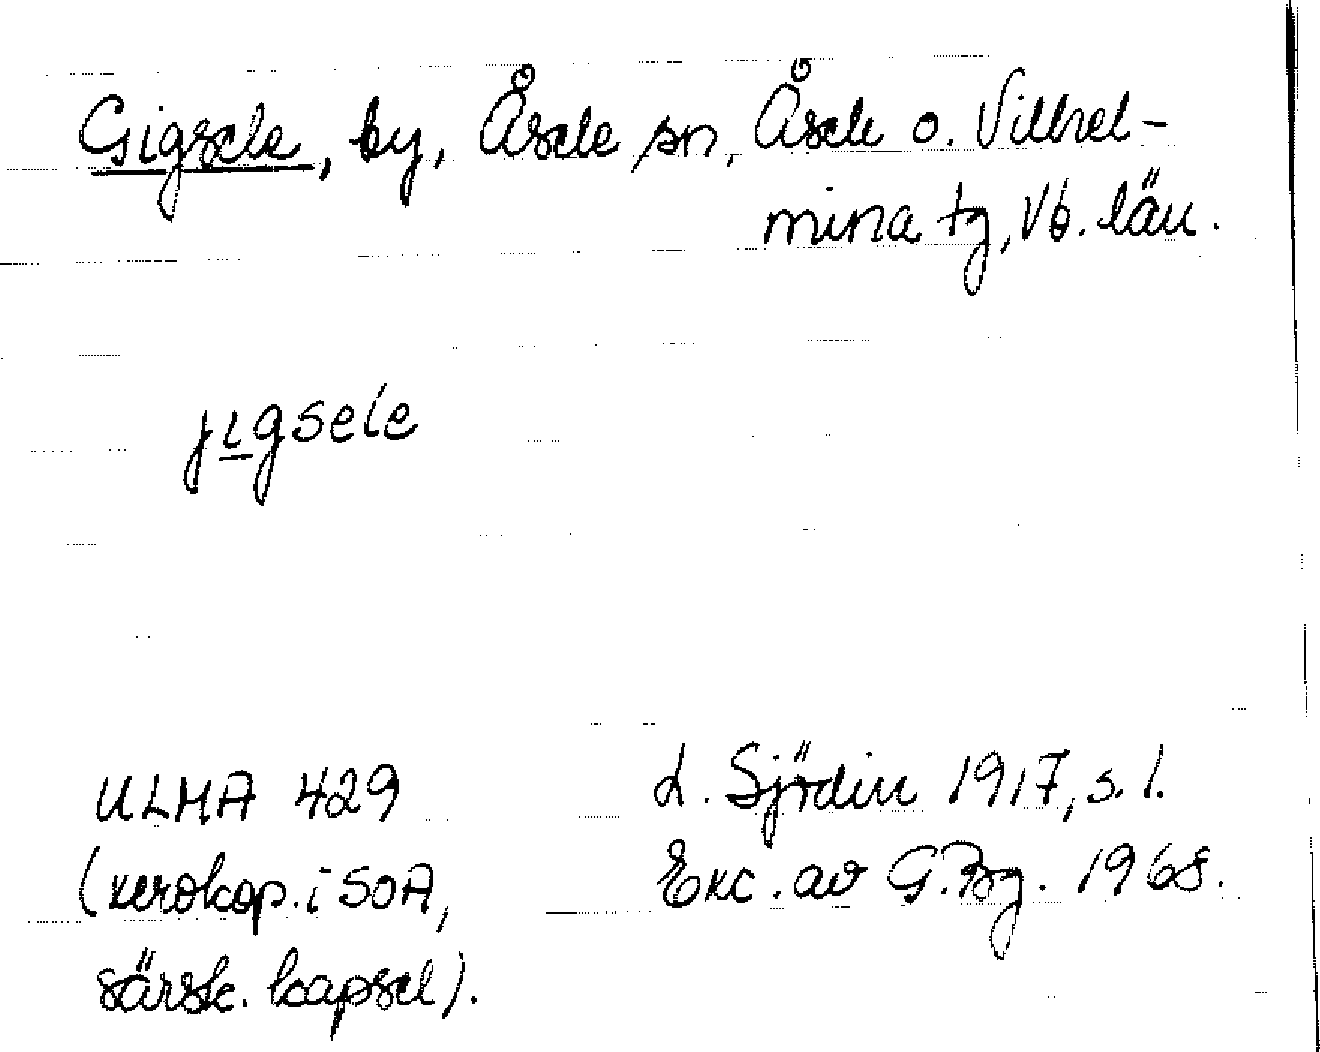 Gigsele, by, Åsele sn, Åsele o. Vilhel-
mina tg, Vb. län.
jigsele
ULMA 429
L. Sjödin 1917, s. 1.
(xerokop. i SOA,
Exc. av G. Bg. 1968.
särsk. kapsel).